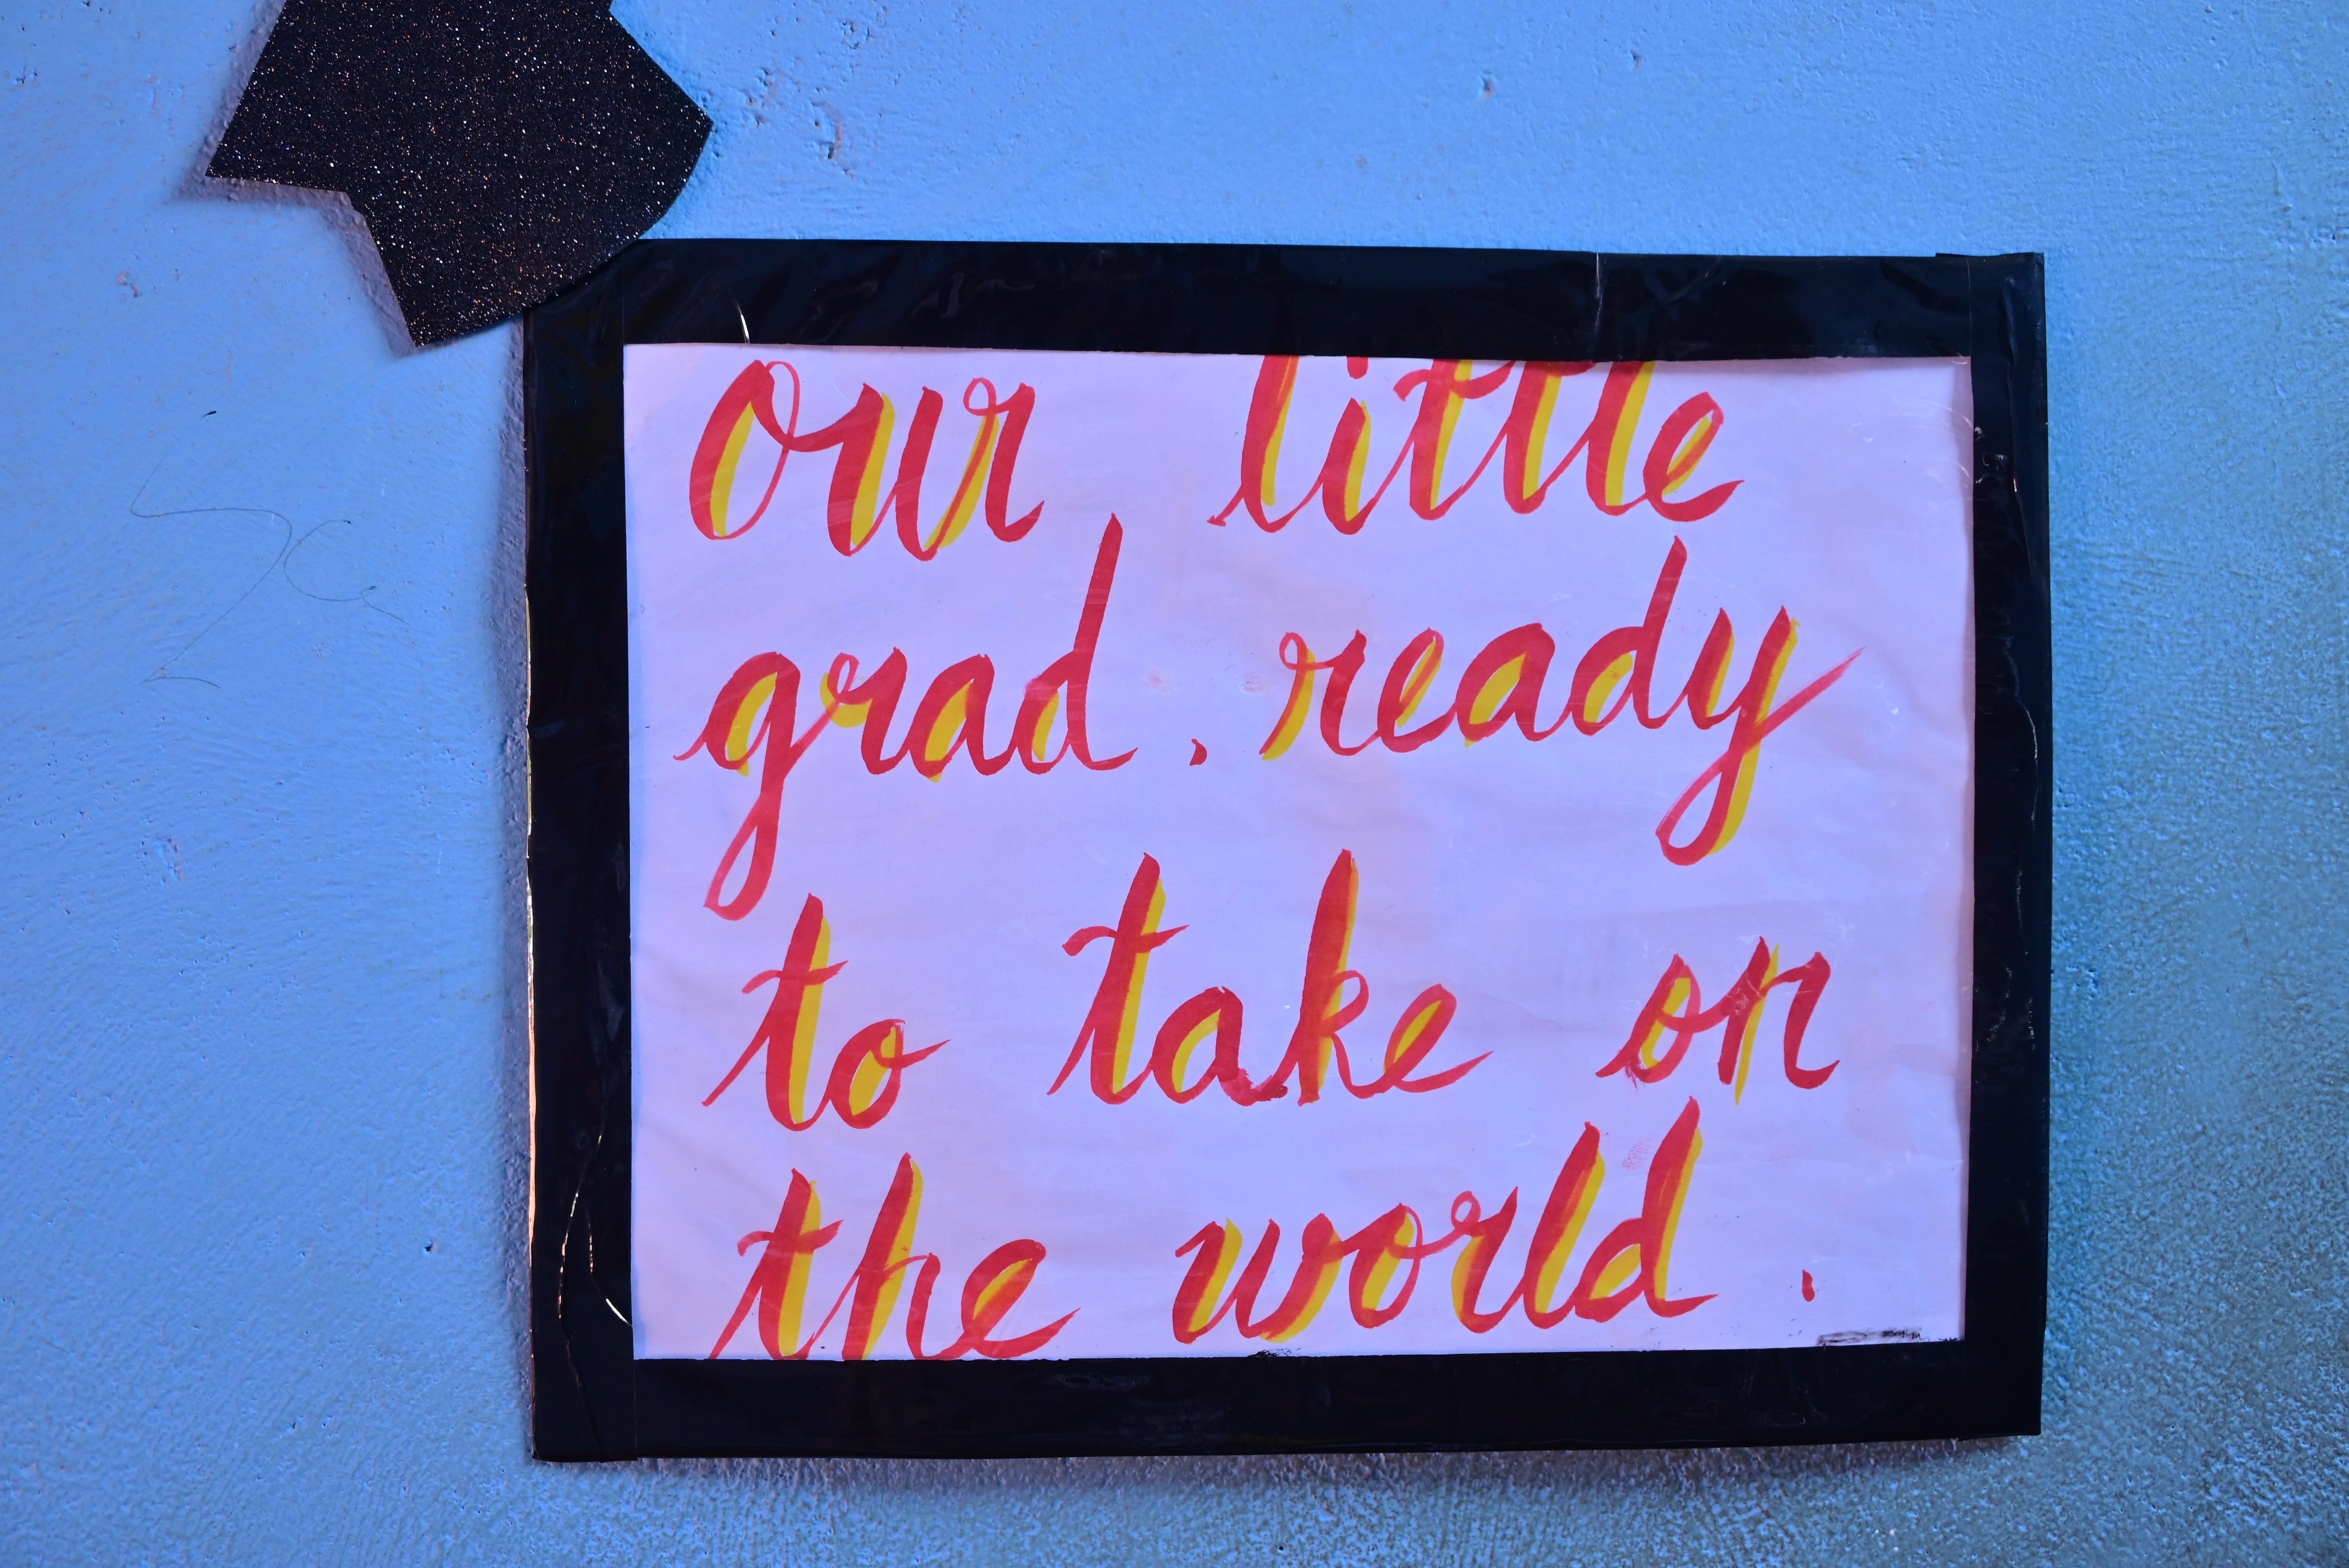 our little
grad. ready
to take on
the world.